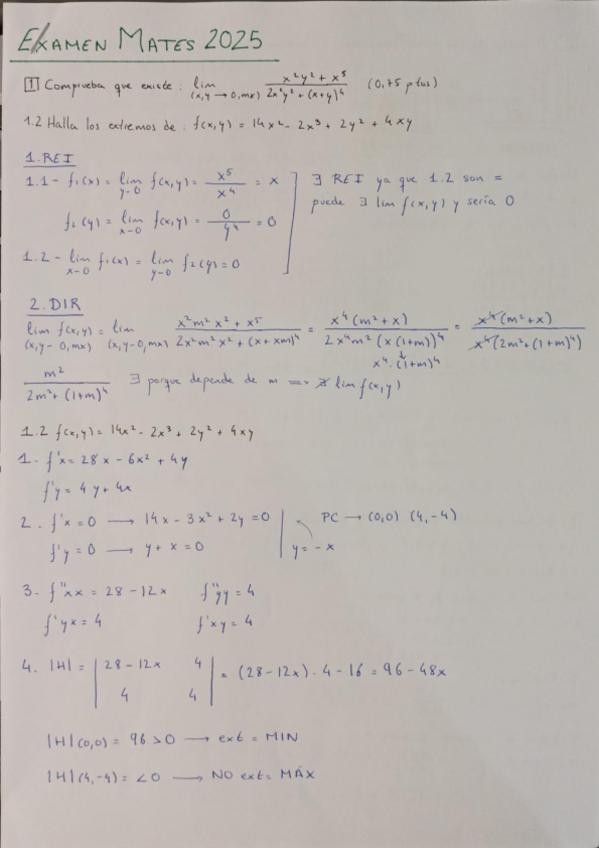 EXAMEN MATES 2025
1 Comprueba que existe: lim (x,y → 0,mx) (x²y² + x⁵)/(2x²y² + (x+y)⁴) (0,75 ptos)
1.2 Halla los extremos de: f(x,y) = 14x² - 2x³ + 2y² + 4xy
1. REI
1.1 - f₁(x) = lim y→0 f(x,y) = x⁵/x⁴ = x ∃ REI ya que 1.2 son =
puede ∃ lim f(x,y) y sería 0
f₂(y) = lim x→0 f(x,y) = 0/y⁴ = 0
1.2 - lim x→0 f₁(x) = lim y→0 f₂(y) = 0
2. DIR
lim (x,y→0,mx) f(x,y) = lim (x,y→0,mx) (x²m²x² + x⁵)/(2x²m²x² + (x + xm)⁴) = x⁴(m² + x)/(2x⁴m² (x(1+m))⁴) = x⁴(m²+x)/(x⁴(2m²+(1+m)⁴))
x⁴·(1+m)⁴
m²/(2m² + (1+m)⁴) ∃ porque depende de m ==> ∄ lim f(x,y)
1.2 f(x,y) = 14x² - 2x³ + 2y² + 4xy
1. - f'x = 28x - 6x² + 4y
f'y = 4y + 4x
2. f'x = 0 → 14x - 3x² + 2y = 0 PC → (0,0) (4,-4)
f'y = 0 → y + x = 0 y = -x
3. f''xx = 28 - 12x f''yy = 4
f'yx = 4 f'xy = 4
4. |H| = | 28 - 12x 4 | = (28 - 12x) · 4 - 16 = 96 - 48x
4 4
|H|(0,0) = 96 > 0 → ext = MIN
|H|(4,-4) = < 0 → NO ext = MÁX